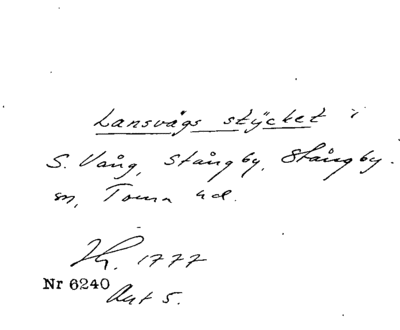 Lansvägs stycket i
S. Vång, Stångby, Stångby
sn, Torna hd.
1777
Nr 6240
Akt 5.